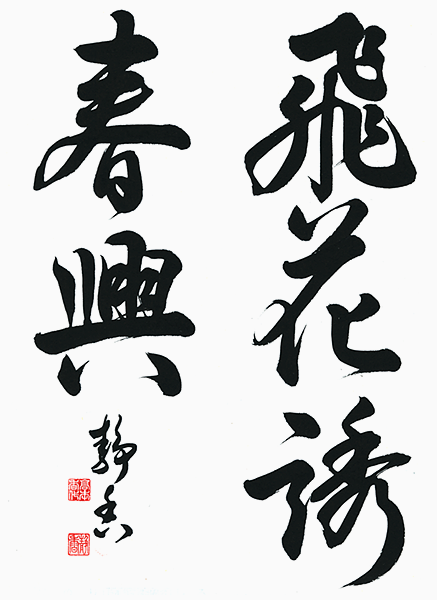 飛花誘
春興
静香